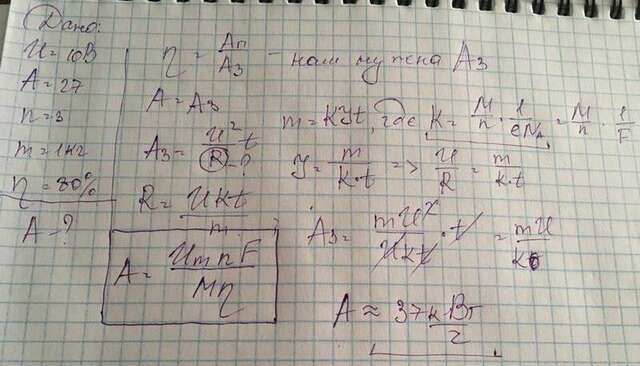 Дано:
U = 10В
A = 27
n = 3
m = 1кг
η = 80%
A - ?
η = Aп/Aз - нам нужна Aз
A = Aз
Aз = U²/R t
R - ?
R = Ukt/m
A = UmnF/Mη
m = kJt, где k = M/n · 1/eNA = M/n · 1/F
J = m/k·t => U/R = m/k·t
Aз = mU²/Ukt · t = mU/k
A ≈ 37кВт/2